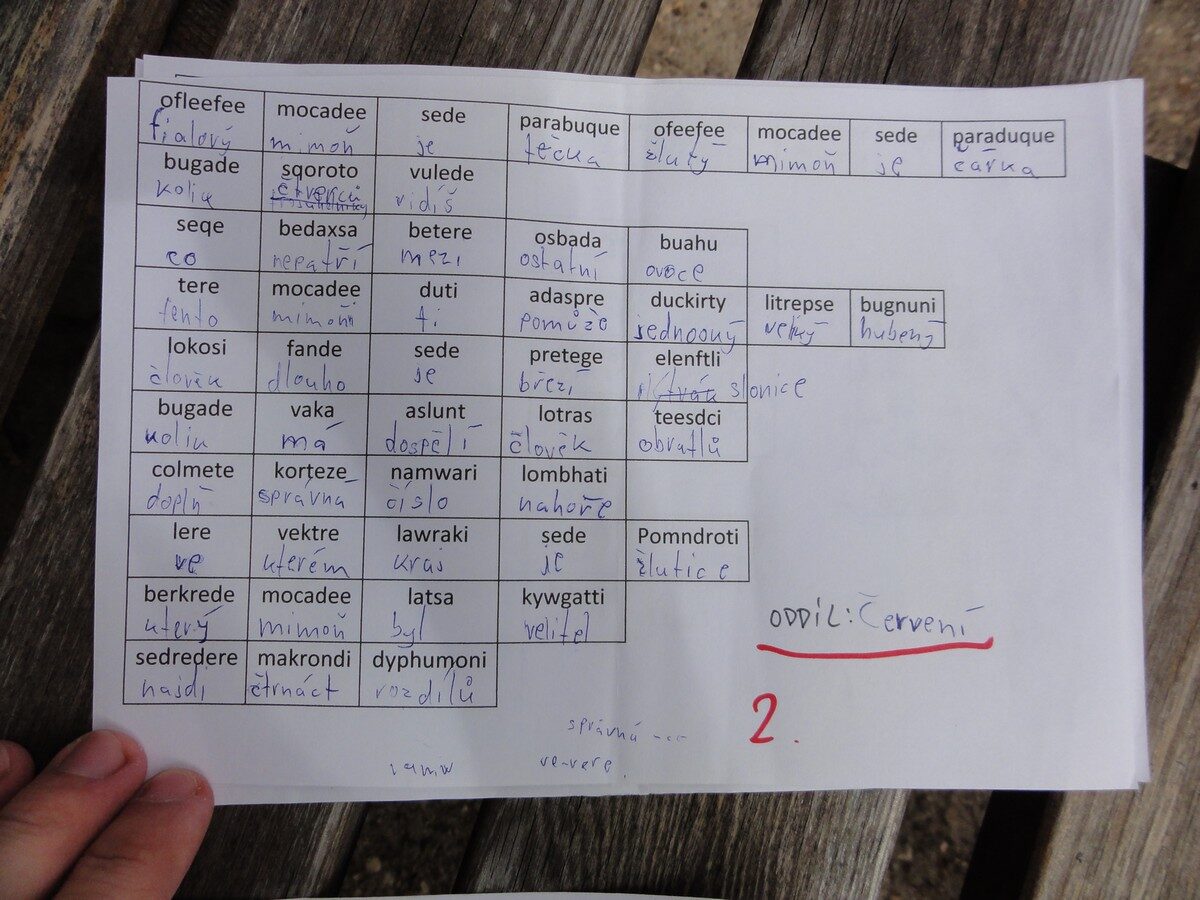 ofleefee mocadee sede parabuque ofeefee mocadee sede paraduque
fialový mimoň je tečka žlutý mimoň je čárka
bugade sqoroto vulede
kolik čtverců vidíš
seqe bedaxsa betere osbada buahu
co nepatří mezi ostatní ovoce
tere mocadee duti adaspre duckirty litrepse bugnuni
tento mimoň ti pomůže jednooký velký hubený
lokosi fande sede pretege elenftli
člověk dlouho je březí slonice
bugade vaka aslunt lotras teesdci
kolik má dospělí člověk obratlů
colmete korteze namwari lombhati
doplň správná číslo nahoře
lere vektre lawraki sede Pomndroti
ve kterém kraj je žlutice
berkrede mocadee latsa kywgatti
který mimoň byl velitel
ODDÍL: Červení
sedredere makrondi dyphumoni
najdi čtrnáct rozdílů
2.
správná ---
ve-vere